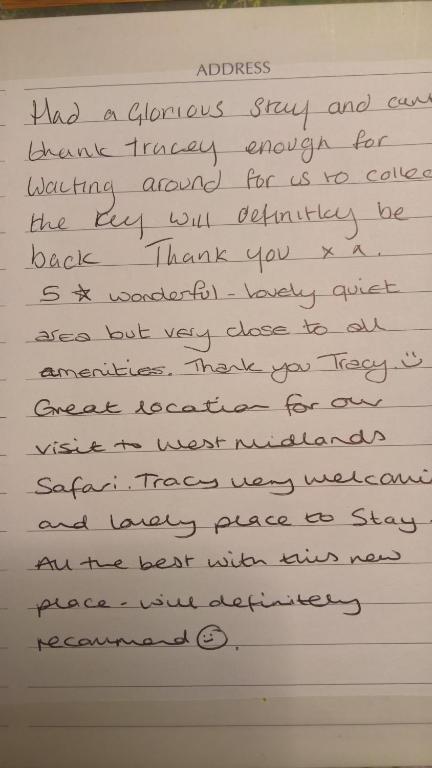 ADDRESS
Had a Glorious Stay and cant
thank Tracey enough for
Waiting around for us to collec
the key will definitley be
back Thank you x x.
5 ☆ wonderful - lovely quiet
area but very close to all
amenities. Thank you Tracy. ☺
Great location for our
visit to West Midlands
Safari. Tracy very welcomi
and lovely place to Stay.
All the best with this new
place - will definitely
recommend ☺.